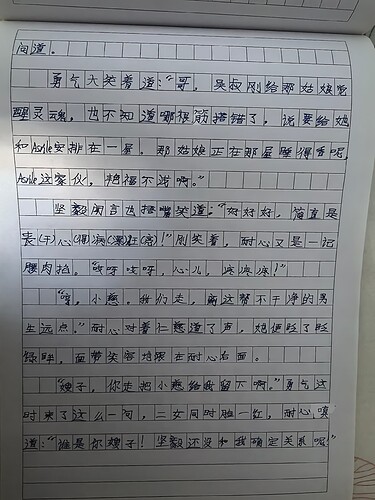 问道。
勇气大笑着道：“哥，吴叔刚给那姑娘唤
醒灵魂，也不知道哪根筋搭错了，说要给她
和Agile安排在一屋。那姑娘正在那屋睡得香呢，
Agile这家伙，艳福不浅啊。”
坚毅闻言也捂嘴笑道：“好好好，简直是
丧(于)心(得)病(漂)狂(亮)！”刚笑着，耐心又是一记
腰肉掐。“哎呀哎呀，心儿，疼疼疼！”
“哼，小慈，我们走，离这帮不干净的男
生远点。”耐心对着仁慈道了声，她便眨了眨
绿眸，面带笑容地跟在耐心右面。
“嫂子，你走把小慈给我留下啊。”勇气这
时来了这么一句，二女同时脸一红，耐心嗔
道：“谁是你嫂子！坚毅还没和我确定关系呢”